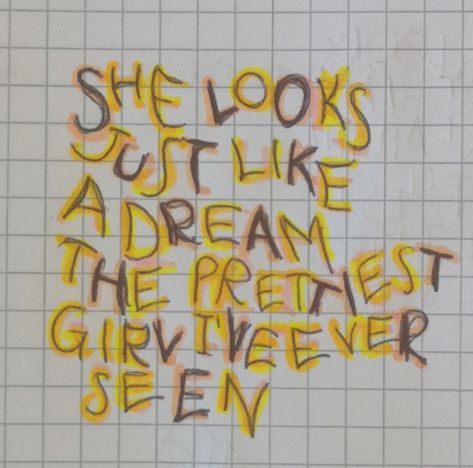 SHE LOOKS
JUST LIKE
A DREAM
THE PRETTIEST
GIRL IVE EVER
SEEN